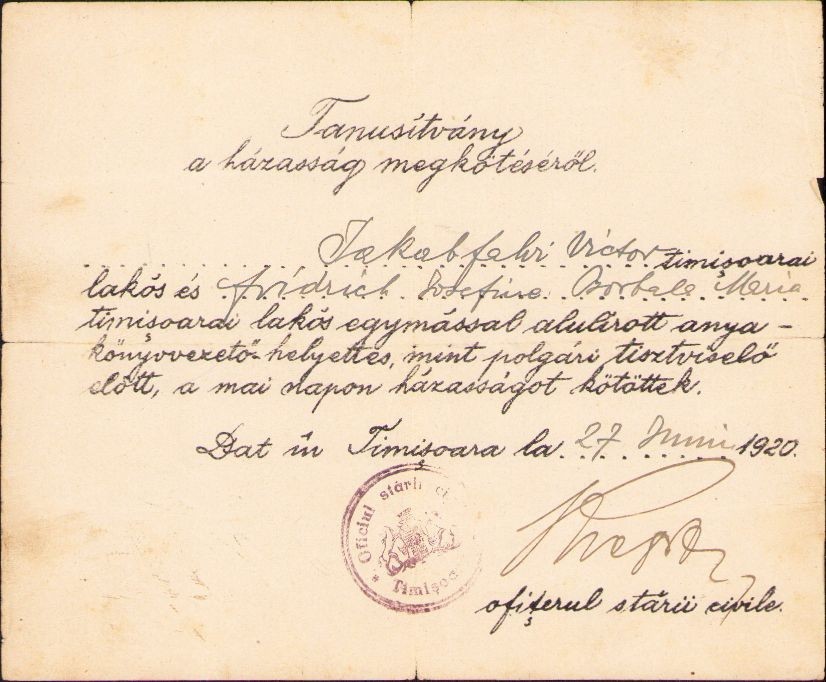 Tanusítvány
a házasság megkötéséről.
Jakabfahi Victor timișoarai
lakós és Fridrich Josefine Borbala Maria
timișoarai lakós egymással alulírott anya-
könyvvezető-helyettes, mint polgári tisztviselő
előtt, a mai napon házasságot kötöttek.
Dat în Timișoara la 27 Juni 1920.
Oficiul stării
Timișoa
ofițerul stării civile.